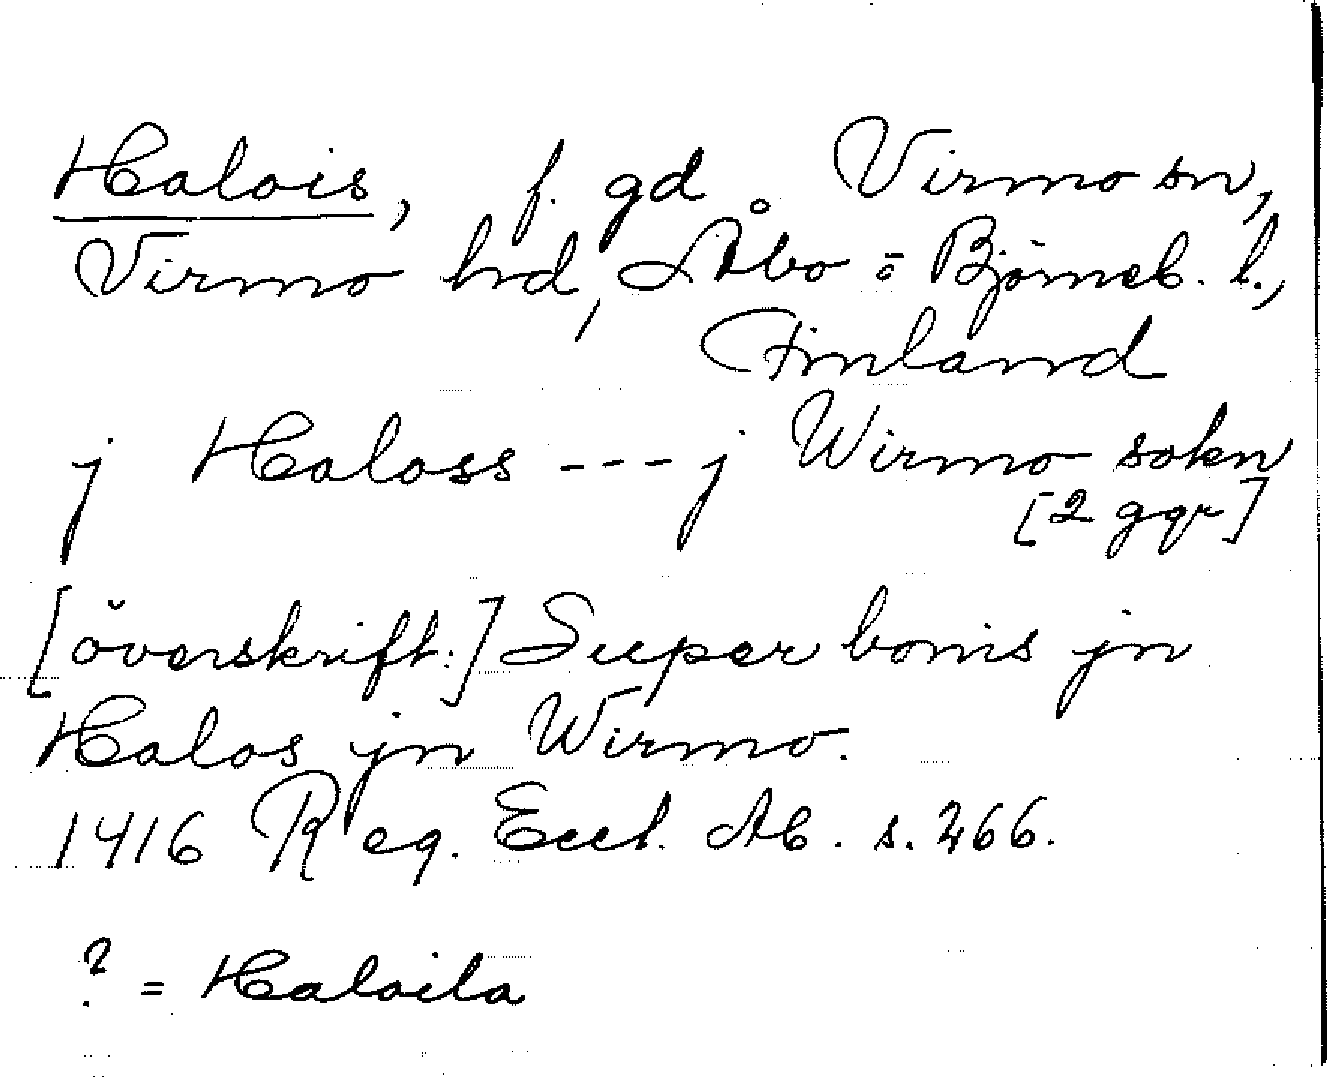 Halois, f. gd. Virmo sn,
Virmo hd, Åbo o Björneb. l.,
Finland
j Haloss --- j Wirmo sokn
[2 ggr]
[överskrift:] Super bonis jn
Halos jn Wirmo.
1416 Reg. Eccl. Ab. s. 266.
? = Haloila